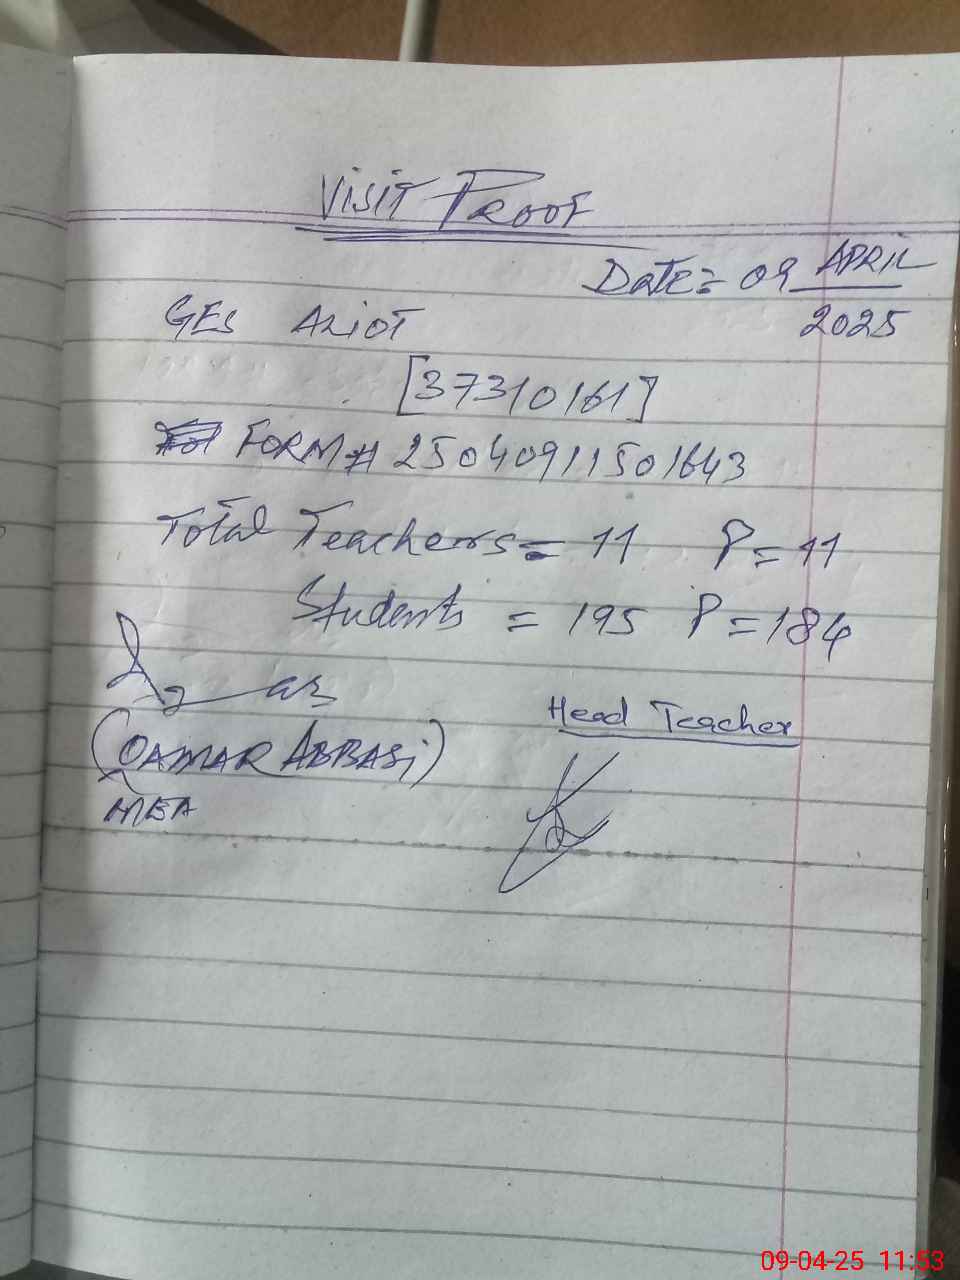 Visit Proof
Date = 09 APRIL
2025
GES ALIOT
[37310161]
FORM # 25040911501643
Total Teachers = 11 P = 11
Students = 195 P = 184
(QAMAR ABBASi)
MEA
Head Teacher
09-04-25 11:53